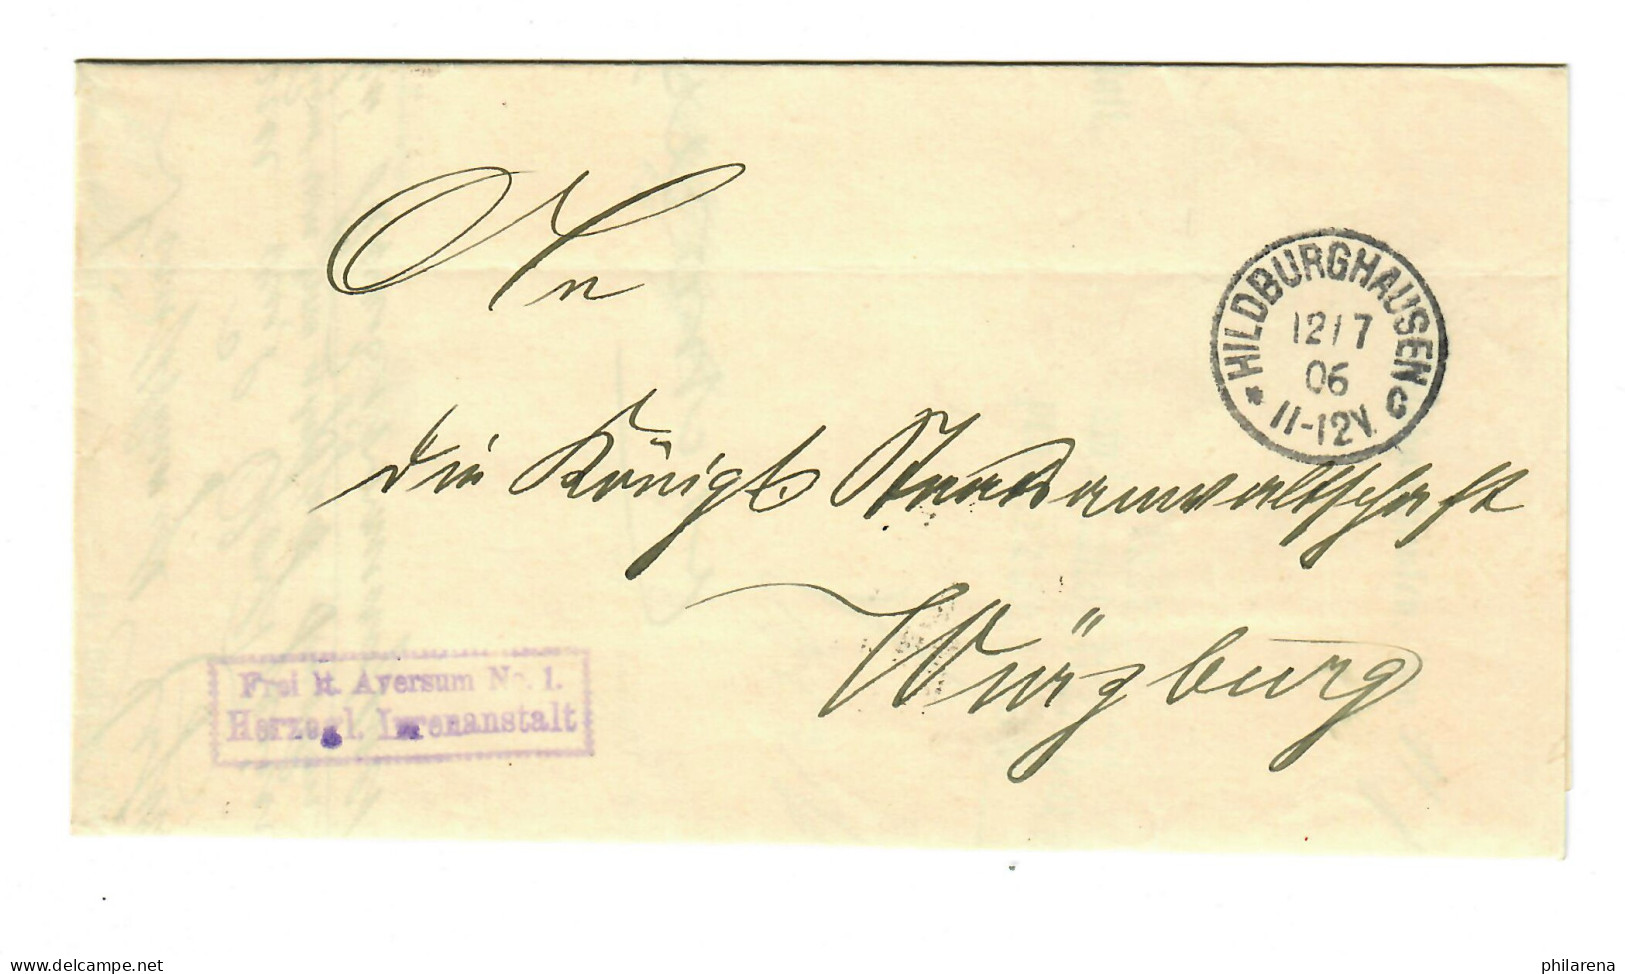 An
HILDBURGHAUSEN
12/7
06
* 11-12V. c
die Königl. Staatsanwaltschaft
Würzburg
Frei lt. Aversum No. 1.
Herzogl. Irrenanstalt
www.delcampe.net
philarena